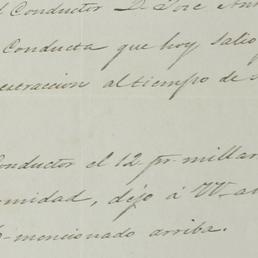 Conductor D. Jose
Conducta que hoy salio
al tiempo de
Conductor el 12 pr. millar
dejo á VV.
mencionado arriba.